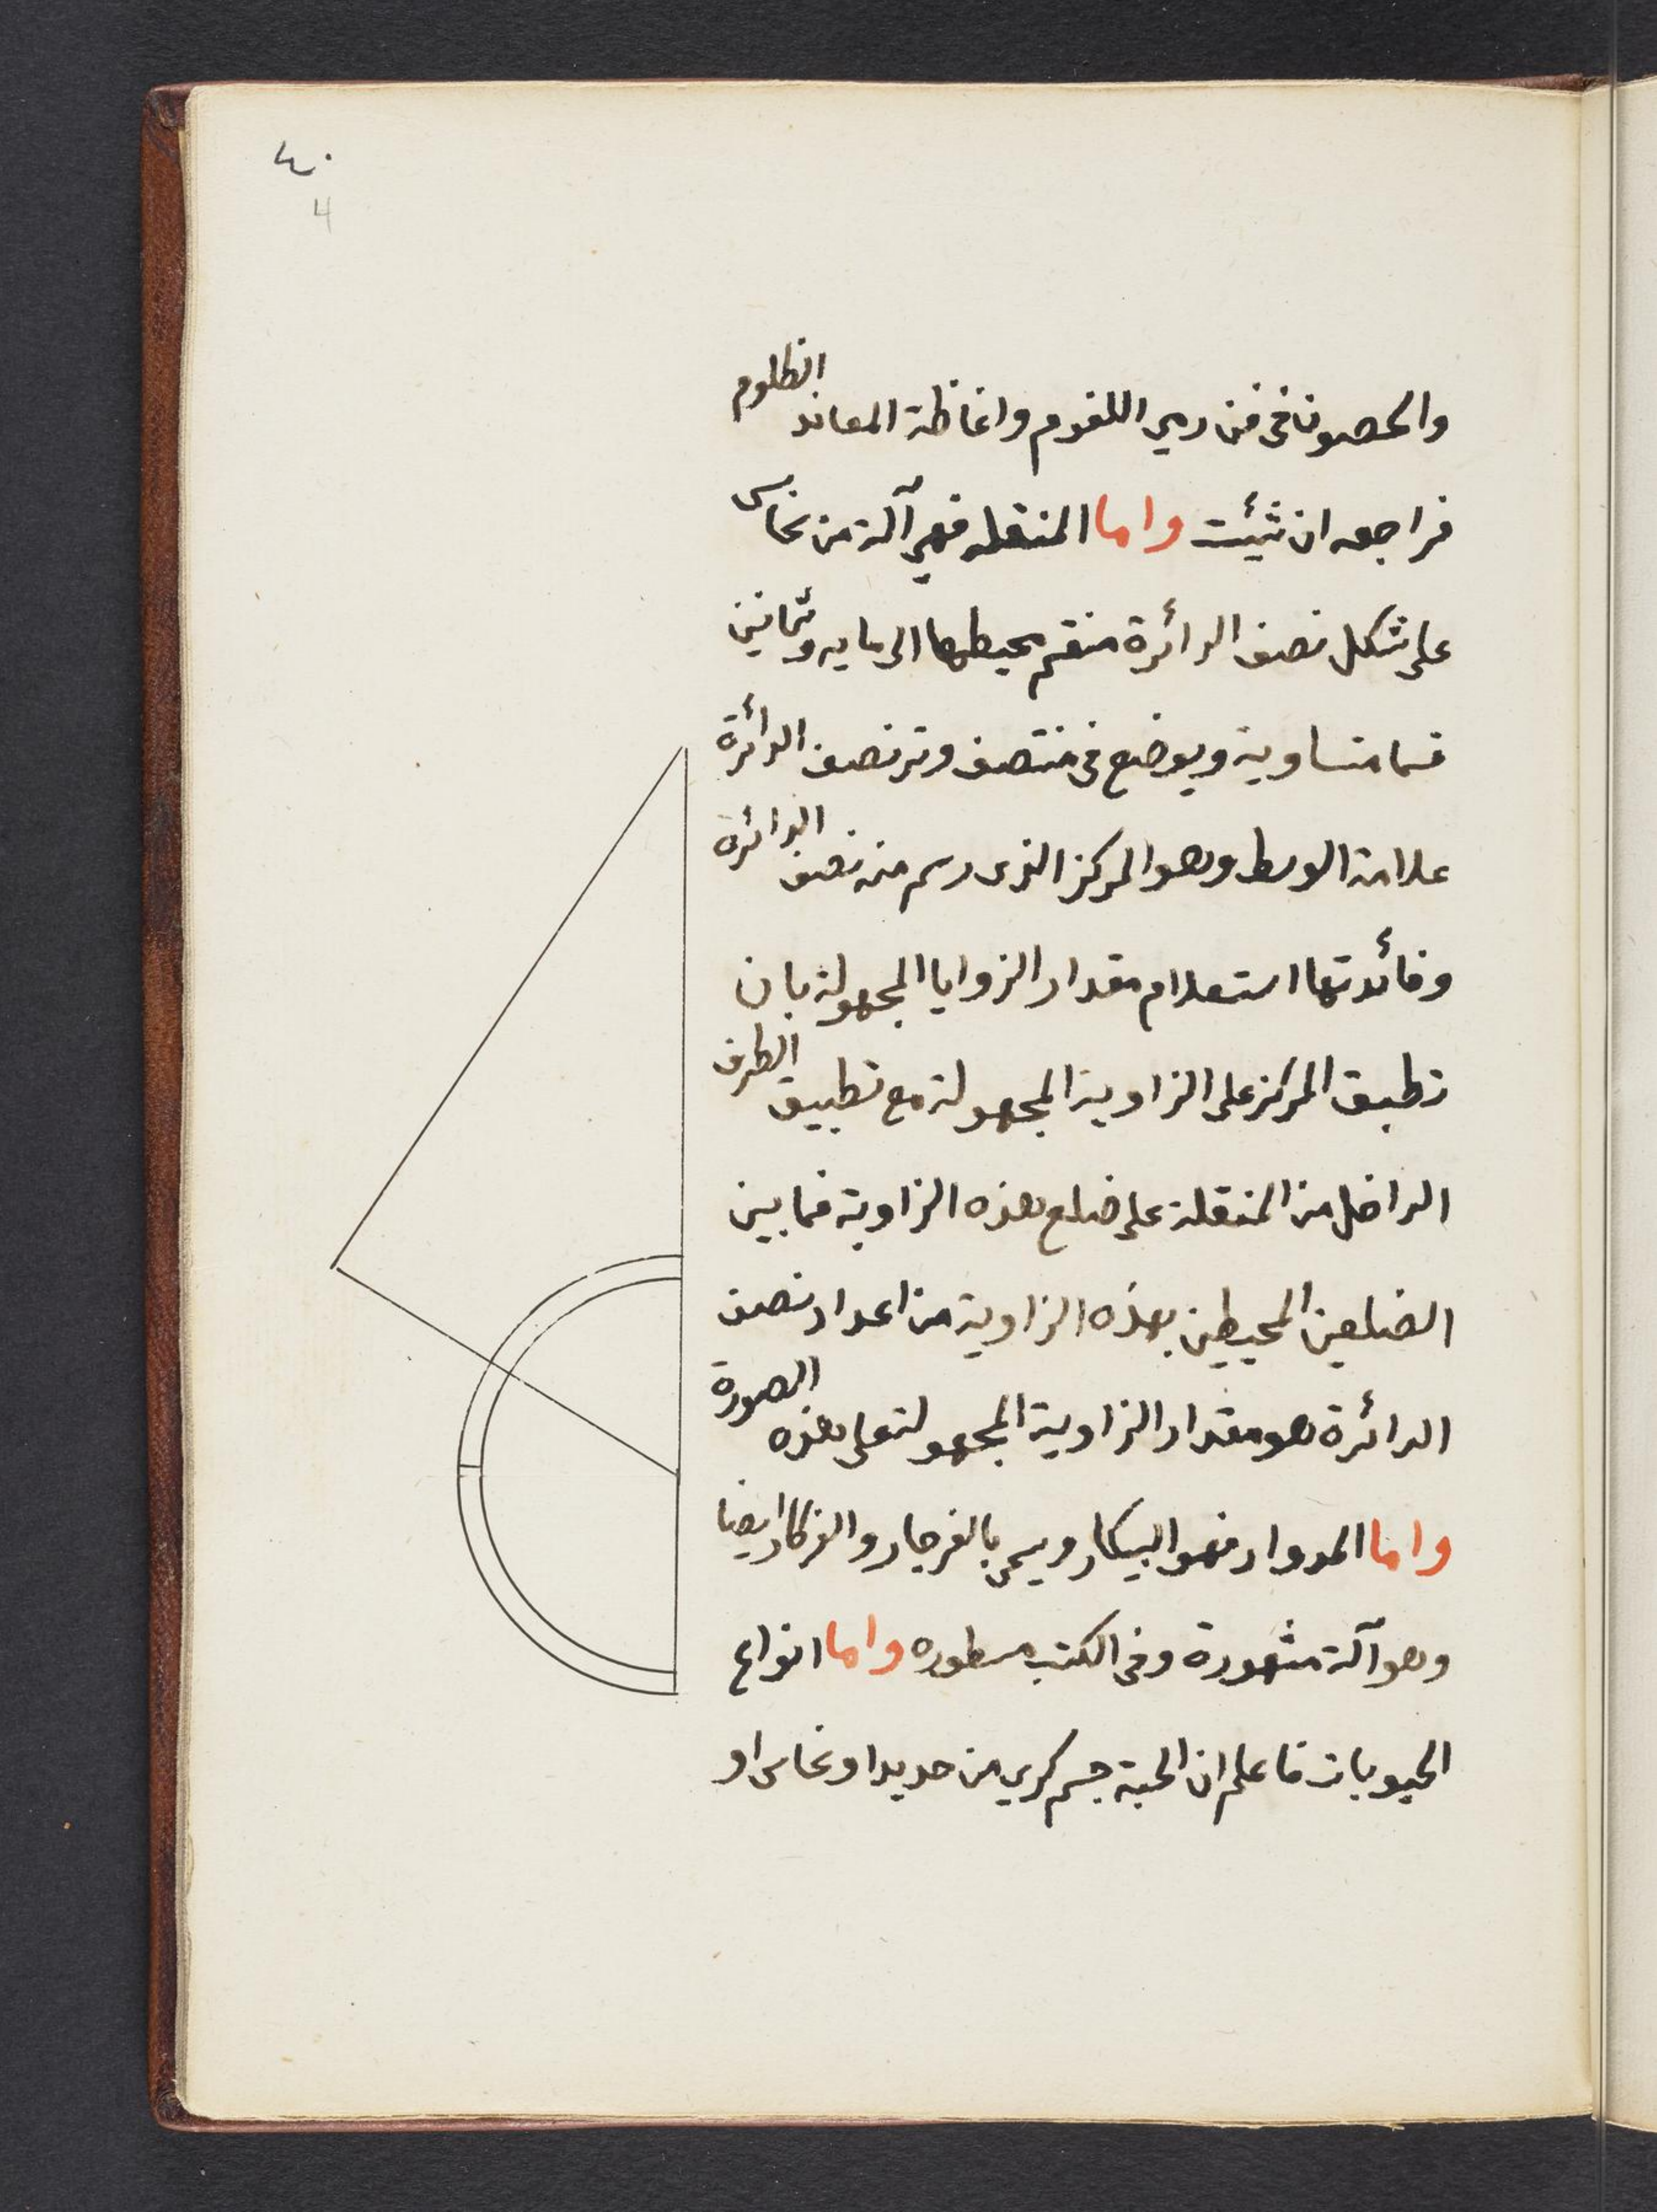 ٤٠
4
والحصون في فن رمي اللغوم واغاظة المعاند الظلوم
فراجعه ان شئت واما المنقله فهي آلة من نحاس
على شكل نصف الدائرة منقسم محيطها الى مايه وثمانين
قسما متساوية ويوضع في منتصف وتر نصف الدائرة
علامة الوسط وهو المركز الذى رسم منه نصف الدائرة
وفائدتها استعلام مقدار الزوايا المجهولة بان
تطبق المركز على الزاوية المجهولة مع تطبيق الطرف
الداخل من المنقلة على ضلع هذه الزاوية فما بين
الضلعين المحيطين بهذه الزاوية من اعداد نصف
الدائرة هو مقدار الزاوية المجهولة على هذه الصورة
واما المدوار فهو البيكار ويسمى بالفرجار والفركار ايضا
وهو آلة مشهورة وفى الكتب مسطوره واما انواع
الحبوبات فاعلم ان الحبة جسم كري من حديد او نحاس او